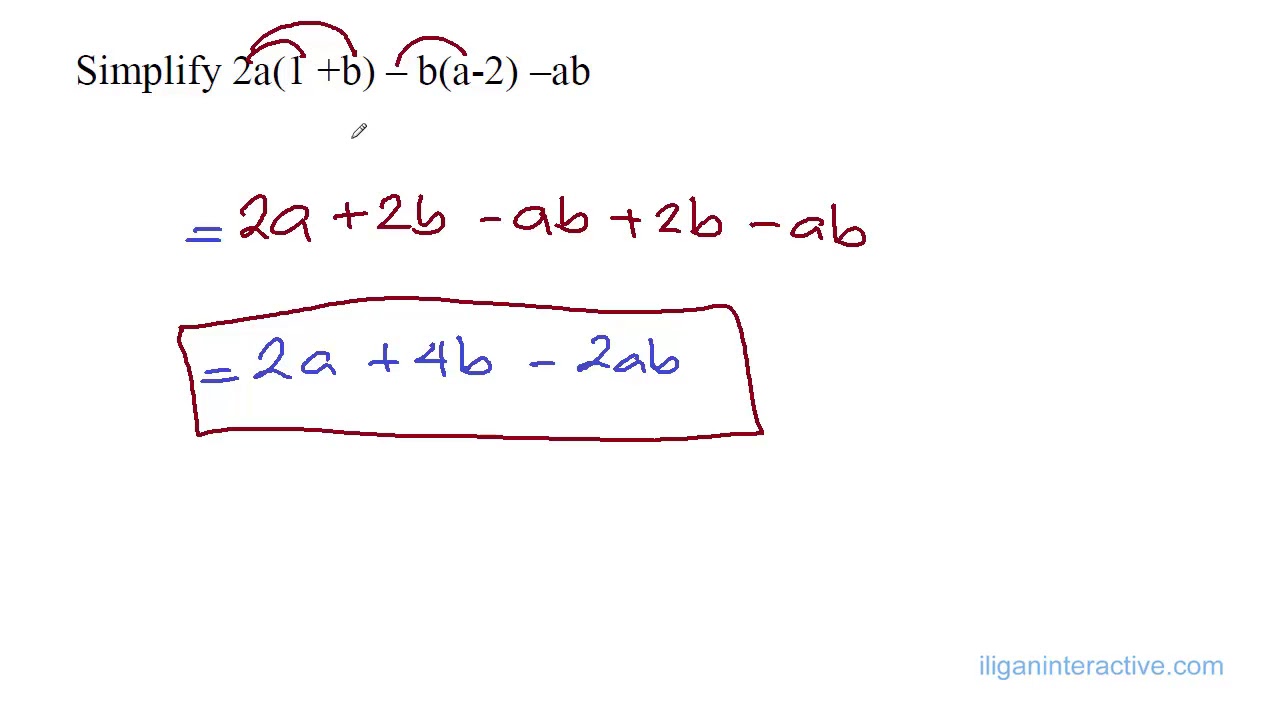 Simplify 2a(1 +b) – b(a-2) –ab
= 2a + 2b - ab + 2b - ab
= 2a + 4b - 2ab
iliganinteractive.com